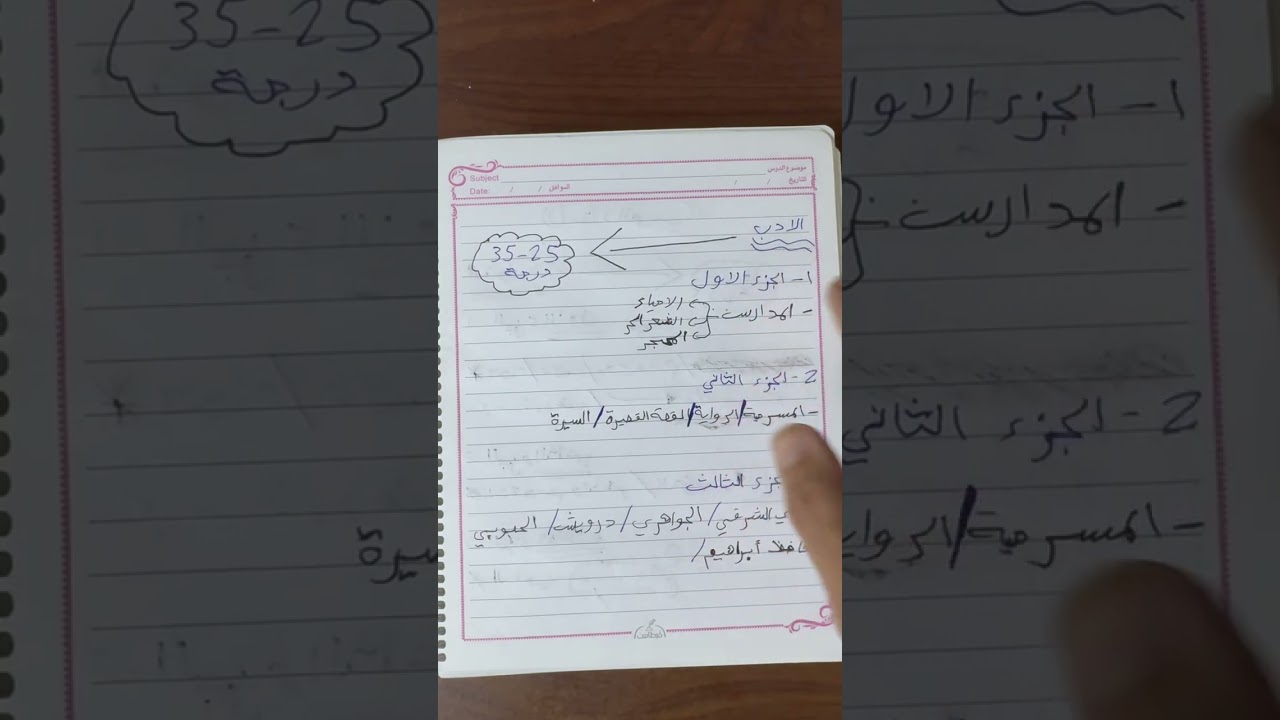 موضوع الدرس
Subject
التاريخ / / الموافق / / Date:
الادب
35-25
درجة
1- الجزء الاول
- المدارس
الاحياء
الشعر الحر
المهجر
2- الجزء الثاني
- المسرحية/الرواية/القصة القصيرة/السيرة
جزء الثالث
ي الشرقي/الجواهري/درويش/الحبوبي
حافظ أبراهيم/